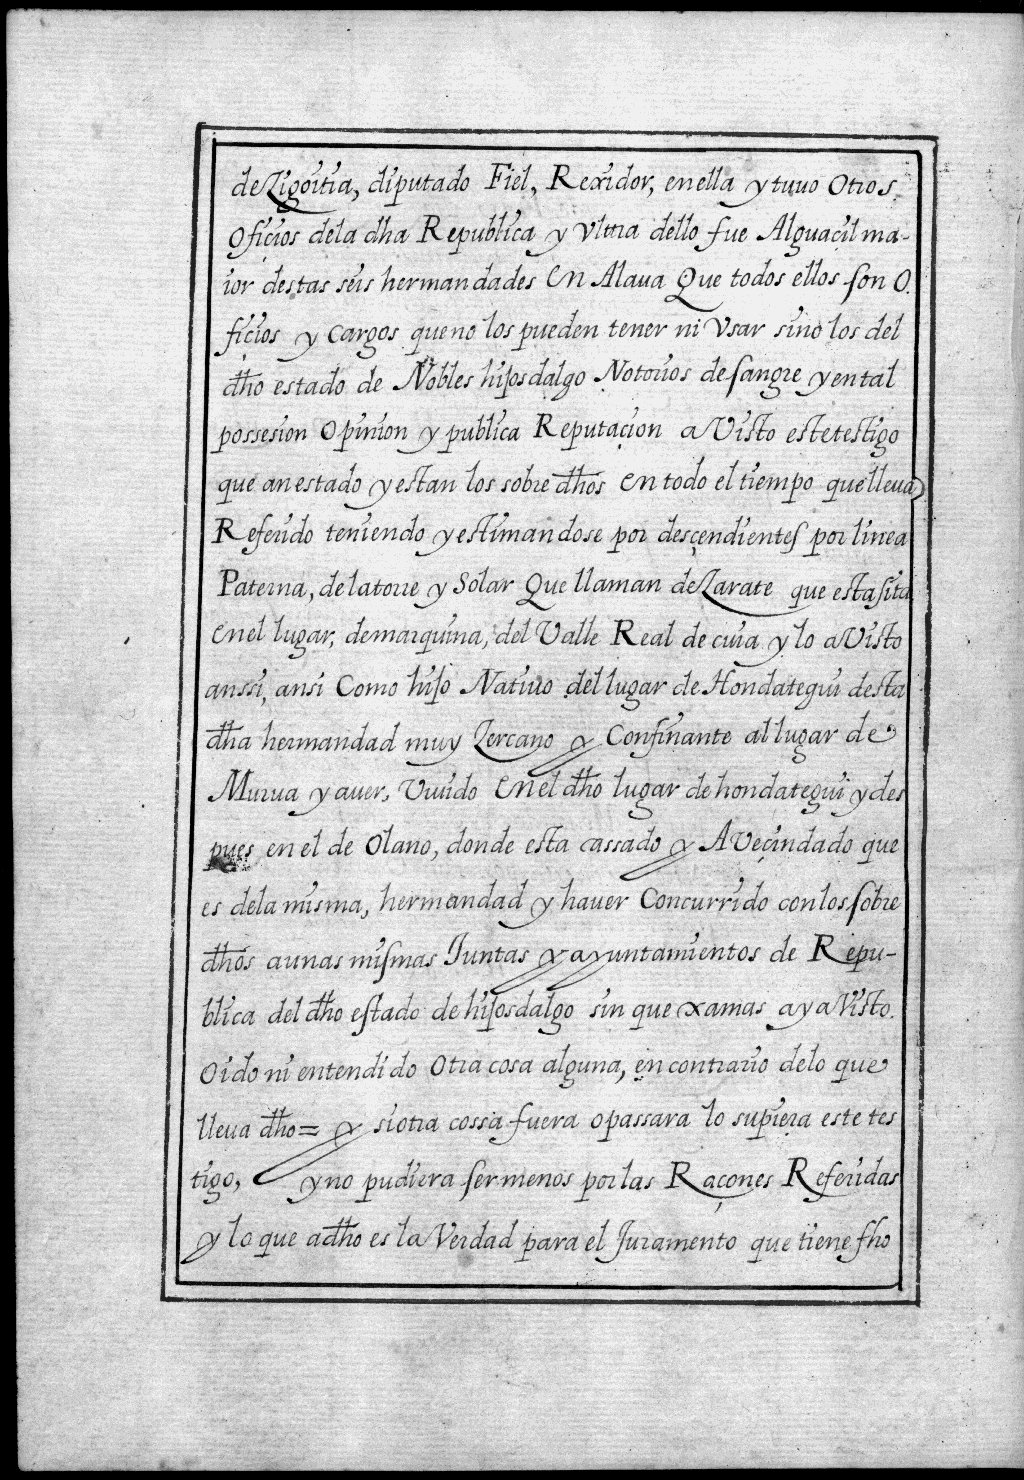 de Zigoitia, diputado Fiel, Rexidor, en ella y tuuo Otros
Oficios dela dha Republica y Vltra dello fue Alguaçil ma-
ior destas seis hermandades En Alaua Que todos ellos son O.
fiçios y Cargos que no los pueden tener ni Vsar sino los del
dho estado de Nobles hijosdalgo Notorios de sangre y en tal
possesion Opinion y publica Reputaçion a Visto este testigo
que an estado y estan los sobre dhos En todo el tiempo que lleua
Referido teniendo y estimandose por desçendientes por linea
Paterna, de la torre y Solar Que llaman de Zarate que esta sita
En el lugar, de marquina, del Valle Real de cuia y lo a Visto
anssi, ansi Como hijo Natiuo del lugar de Hondategui desta
dha hermandad muy Zercano y Confinante al lugar de
Murua y auer, Viuido En el dho lugar de hondategui y des
pues en el de Olano, donde esta cassado y A Veçindado que
es dela misma, hermandad y hauer Concurrido con los sobre
dhos a unas mismas Juntas y ayuntamientos de Repu-
blica del dho estado de hijosdalgo sin que xamas aya Visto.
Oido ni entendido Otra cosa alguna, en contrario delo que
lleua dho= y si otra cossa fuera o passara lo supiera este tes
tigo, y no pudiera ser menos por las Raçones Referidas
y lo que a dho es la Verdad para el Juramento que tiene fho